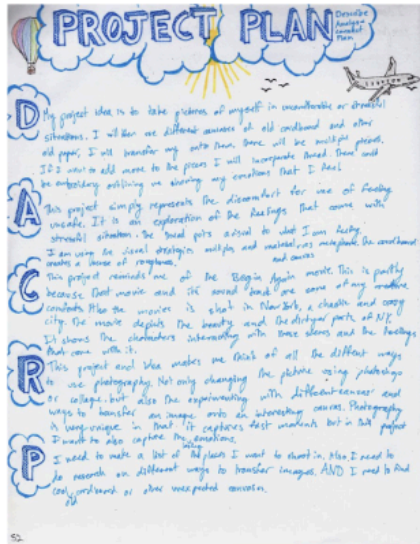 PROJECT PLAN
Describe
Analyze
Connect
Plan
D
My project idea is to take pictures of myself in uncomfortable or stressful
situations. I will then use different canvases of old cardboard and other
old paper, I will transfer my onto them, there will be multiple pieces.
If I want to add more to the pieces I will incorporate thread. There could
be embroidery outlining or showing my emotions that I feel
A
This project simply represents the discomfort for me of feeling
unsafe. It is an exploration of the feelings that come with
stressful situation. The thread puts a visual to what I am feeling.
I am using the visual strategies multiples and materials as metaphor the cardboard
creates a sense of roughness. and canvas
C
This project reminds me of the Begin Again movie. This is partly
because that movie and its sound track are some of my creative
comforts. Also the movie is shot in New York, a chaotic and crazy
city. The movie depicts the beauty and the dirtyer parts of NY.
It shows the characters interacting with those and the feelings
that come with it.
R
This project and idea makes me think of all the diffent ways
to use photography. Not only changing the picture using photoshop
or collage but also the experimenting with different canvases and
ways to transfer an image onto an interesting canvas. Photography
is very unique in that it captures fast moments but in this project
I want to also capture the emotions.
P
I need to make a list of the places I want to shoot in. Also, I need to
do research on different ways to transfer images. AND I need to find
cool old cardboard or other unexpected canvases.
52